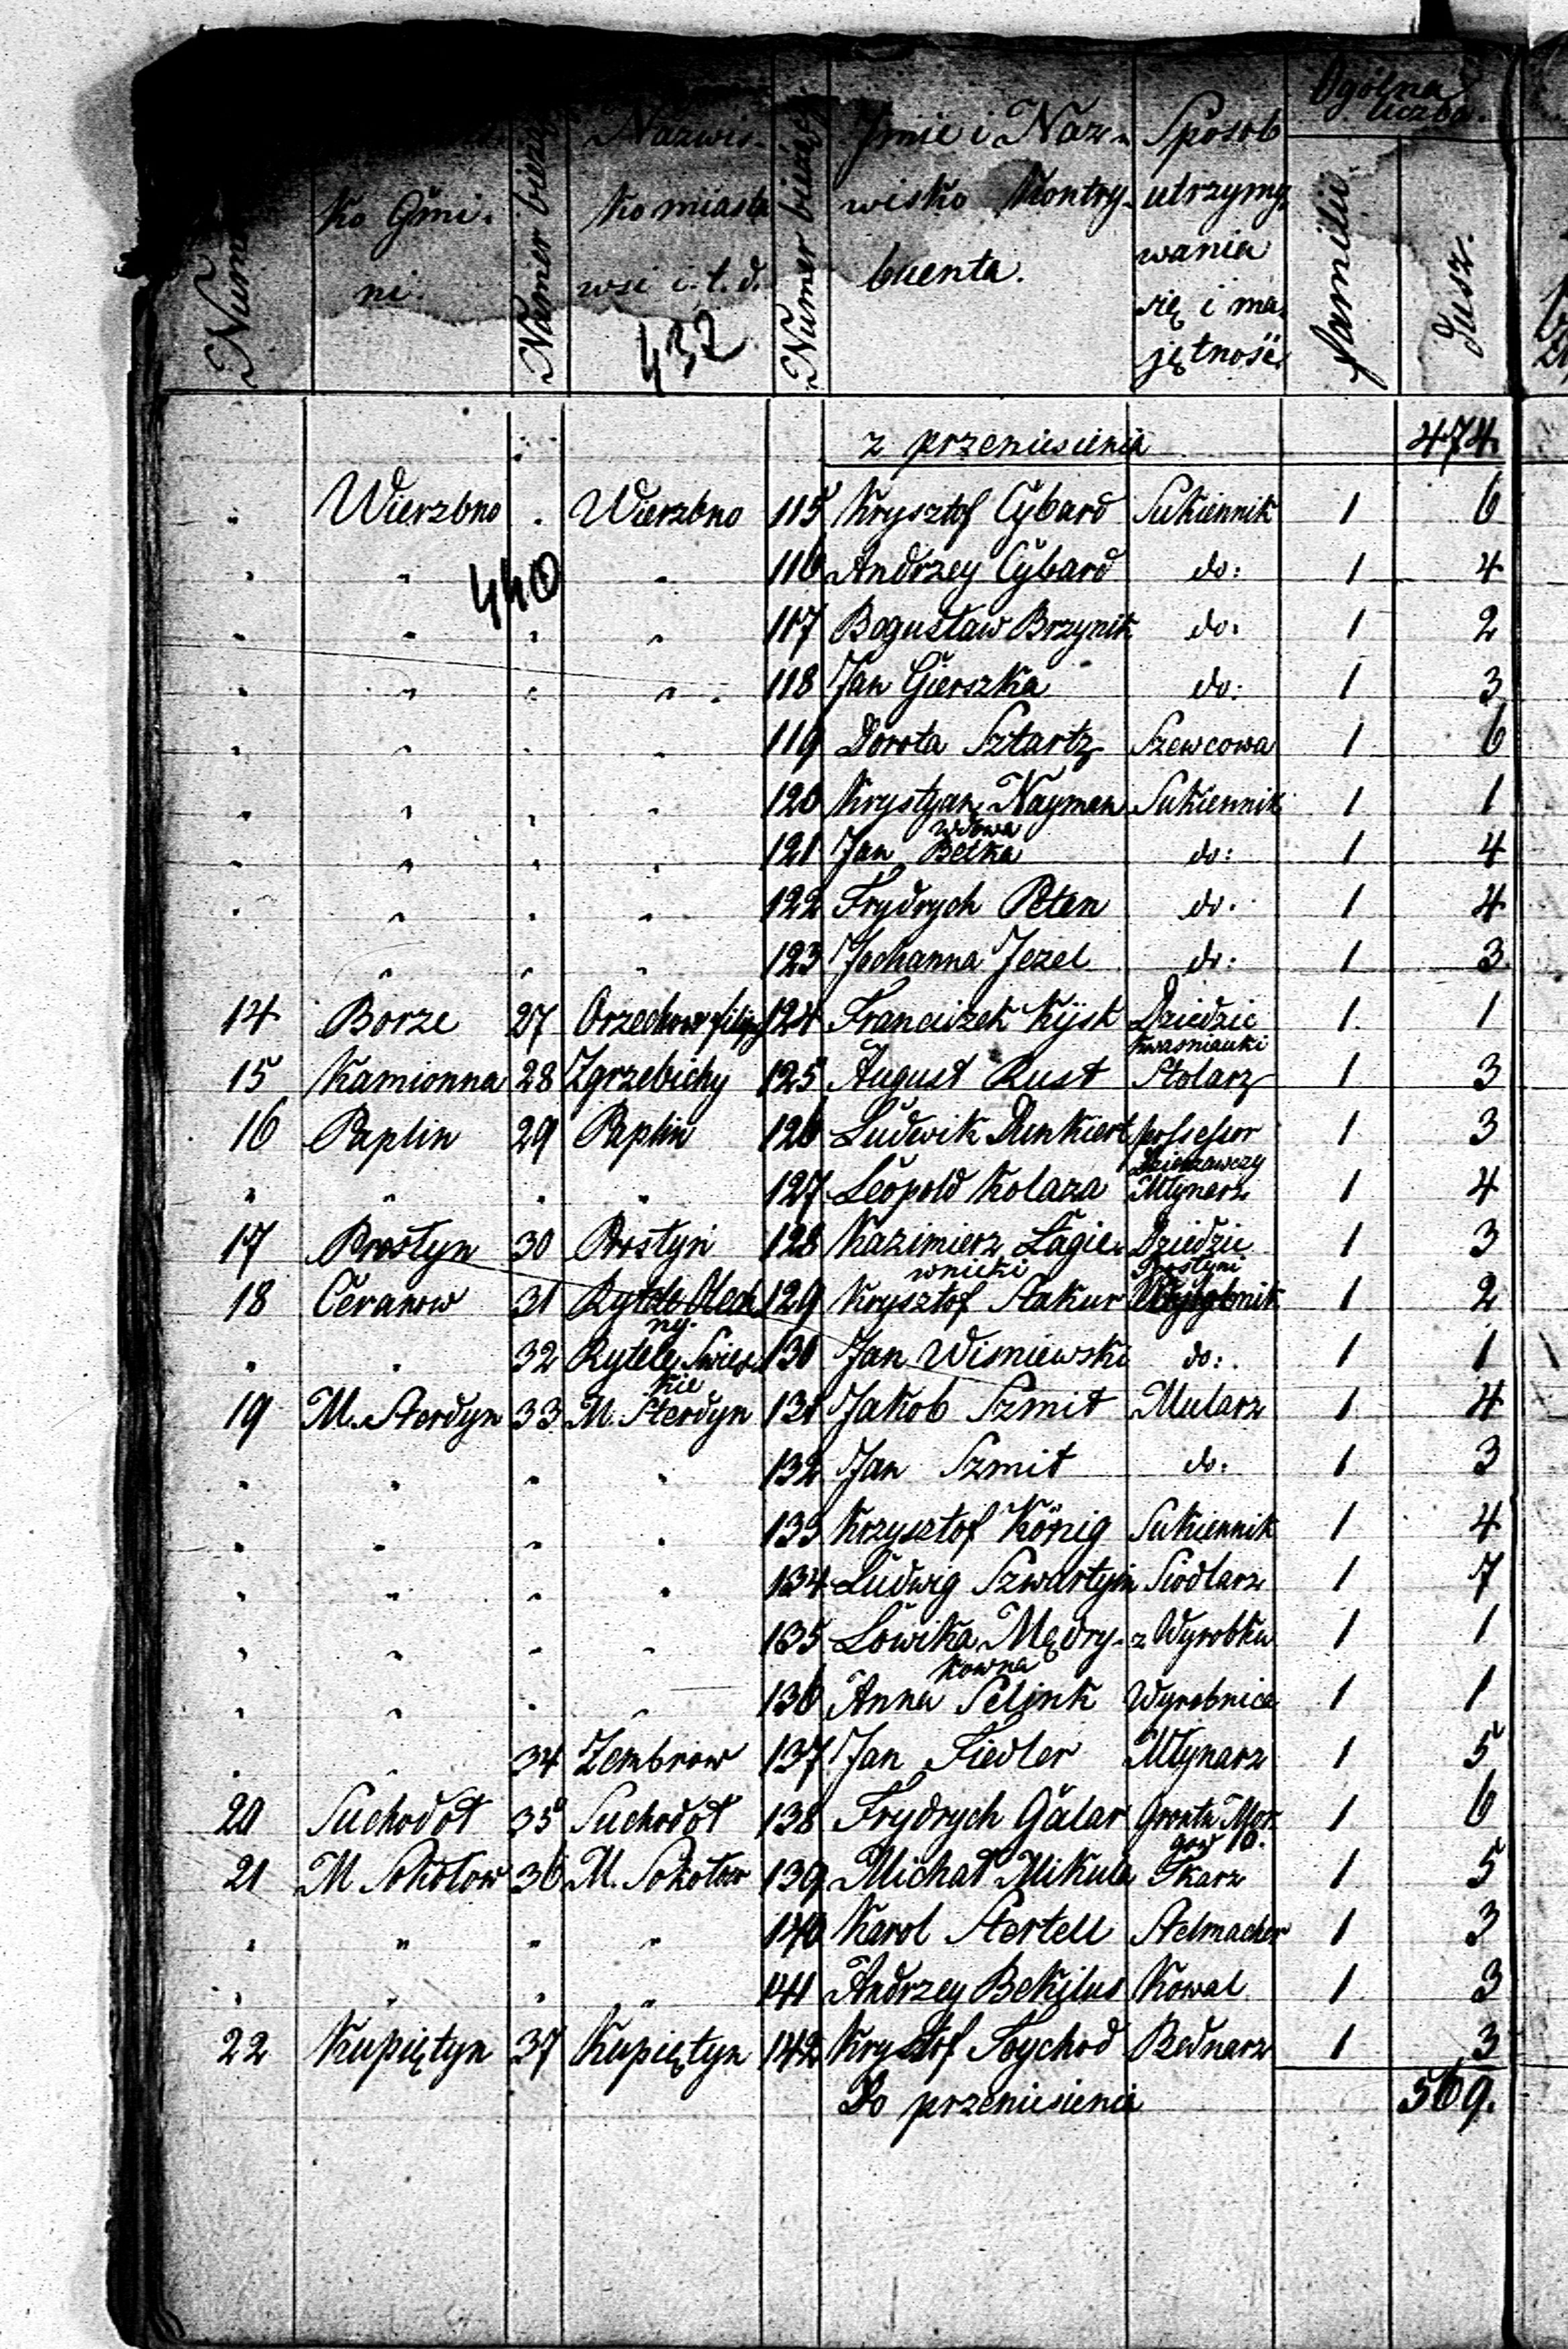 Ogólna
liczba.
Nazwis- Imie i Naz- Sposob
ko Gmi- ko miasta wisko Kontry- utrzymy-
ni. wsi i.t.d. buenta. wania
się i ma-
jętność.
Numer bieżą Numer bieżą familii. dusz.
432
z przeniesienia 474.
" Wierzbno " Wierzbno 115 Krysztof Cybard Sukiennik 1 6
440
" " " 116 Andrzey Cybard do: 1 4
" " " " 117 Bogusław Brzynik do: 1 2
" " " " 118 Jan Gierszka do: 1 3
" " " " 119 Dorota Sztartz Szewcowa 1 6
" " " " 120 Krystyan Nayman Sukiennik 1 1
wdowa
" " " " 121 Jan Betka do: 1 4
" " " " 122 Frydrych Peten do. 1 4
" " " 123 Jochanna Jezel do: 1 3
14 Borze 27 Orzechow 124 Francizek Kijsk Dziedzic 1 1
15 Kamionna 28 Zgrzebichy 125 August Rust Stolarz 1 3
16 Paplin 29 Paplin 126 Ludwik Dunkiert possessor 1 3
Dzierzawczy
" " " " 127 Leopold Kolaza Młynarz 1 4
17 Prostyn 30 Prostyn 128 Kazimierz Łagie- Dziedzic 1 3
wnicki Prostyni
18 Ceranow 31 Rytele Olech 129 Krysztof Stakur Wyrobnik 1 2
ny.
" " 32 Rytele Swiec 130 Jan Wisniewski do: 1 1
kie
19 M. Sterdyn 33 M. Sterdyn 131 Jakob Szmit Mularz 1 4
" " " " 132 Jan Szmit do: 1 3
" " " " 133 Krzysztof König Sukiennik 1 4
" " " " 134 Ludwig Szwartyin Siodlarz 1 7
" " " " 135 Lowika Mędry- z Wyrobku 1 1
kowna
" " " " 136 Anna Selink Wyrobnica 1 1
" " 34 Zembrow 137 Jan Fiedler Młynarz 1 5
20 Suchodoł 35 Suchodoł 138 Frydrych Gälar Gruntu Mor 1 6
gow 10.
21 M Sokołow 36 M. Sokołow 139 Michał Mikula Tkarz 1 5
" " " " 140 Karol Stertell Stelmacher 1 3
" " " " 141 Andrzey Bekilus Kowal 1 3
22 Kupiętyn 37 Kupiętyn 142 Krysztof Soychod Bednarz 1 3
Do przeniesienia 569.